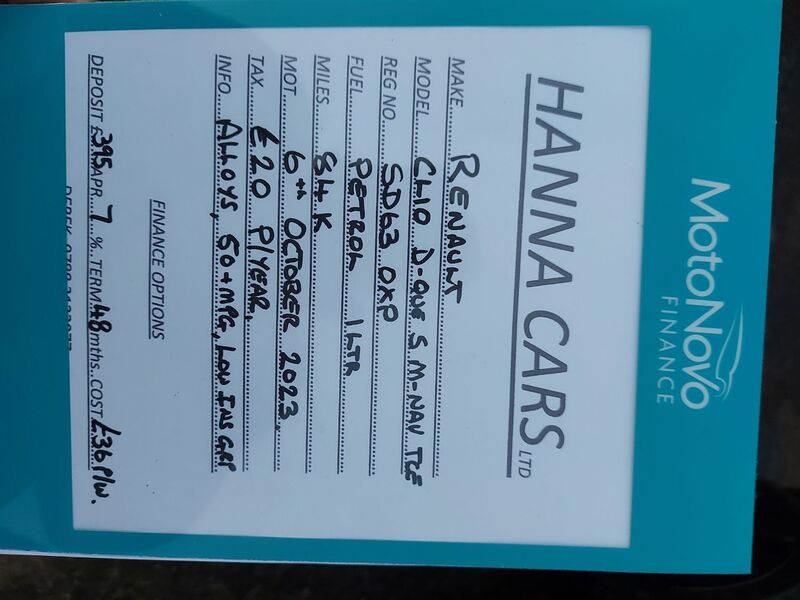 MotoNovo
FINANCE
HANNA CARS LTD
MAKE......RENAULT
MODEL....CLIO D-QUE S M-NAV TCE
REG NO....SD63 OXP
FUEL......PETROL 1 LTR
MILES......84K
MOT.......6TH OCTOBER 2023.
TAX........£20 P/YEAR.
INFO....ALLOYS, 50+MPG, LOW INS GRP
FINANCE OPTIONS
DEPOSIT £395 APR..7..%..TERM 48 mths..COST £36 P/W.